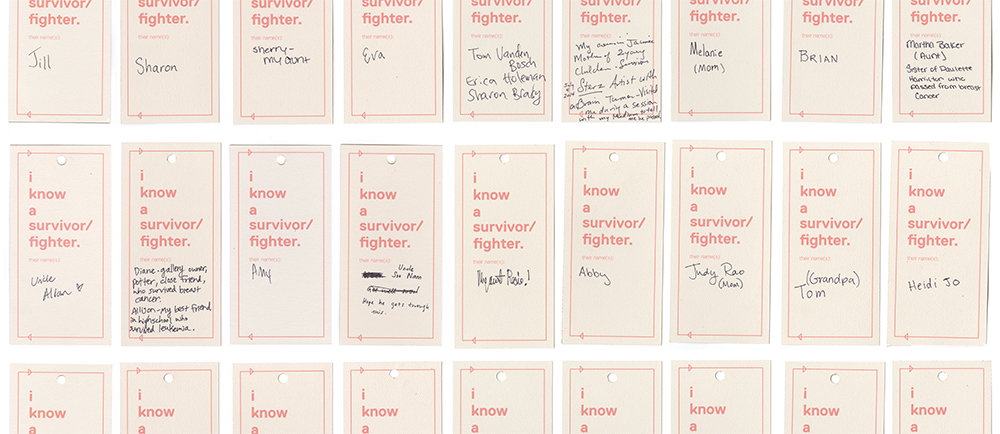 survivor/
fighter.
their name(s):
Jill
survivor/
fighter.
their name(s):
Sharon
survivor/
fighter.
their name(s):
sherry-
my aunt
survivor/
fighter.
their name(s):
Eva
survivor/
fighter.
their name(s):
Tom Vanden
Bosch
Erica Holeman
Sharon Brady
survivor/
fighter.
their name(s):
My cousin Jaimie
Mother of 2 young
Children - Survivor
Artist with
a Brain Tumor -
during a session
with my
survivor/
fighter.
their name(s):
Melanie
(Mom)
survivor/
fighter.
their name(s):
BRIAN
survivor/
fighter.
their name(s):
Martha Baker
(Aunt)
Sister of Paulette
Hamilton who
passed from breast
cancer
i
know
a
survivor/
fighter.
their name(s):
Uncle
Allan
i
know
a
survivor/
fighter.
their name(s):
Diane-gallery owner,
potter, close friend,
who survived breast
cancer.
Allison-My best friend
in highschool who
survived leukemia.
i
know
a
survivor/
fighter.
their name(s):
Amy
i
know
a
survivor/
fighter.
their name(s):
Uncle
Soo Nam
Hope he goes through
this.
i
know
a
survivor/
fighter.
their name(s):
My aunt
i
know
a
survivor/
fighter.
their name(s):
Abby
i
know
a
survivor/
fighter.
their name(s):
Judy Rao
(Mom)
i
know
a
survivor/
fighter.
their name(s):
(Grandpa)
Tom
i
know
a
survivor/
fighter.
their name(s):
Heidi Jo
i
know
a
i
know
a
i
know
a
i
know
a
i
know
a
i
know
a
i
know
a
i
know
a
i
know
a